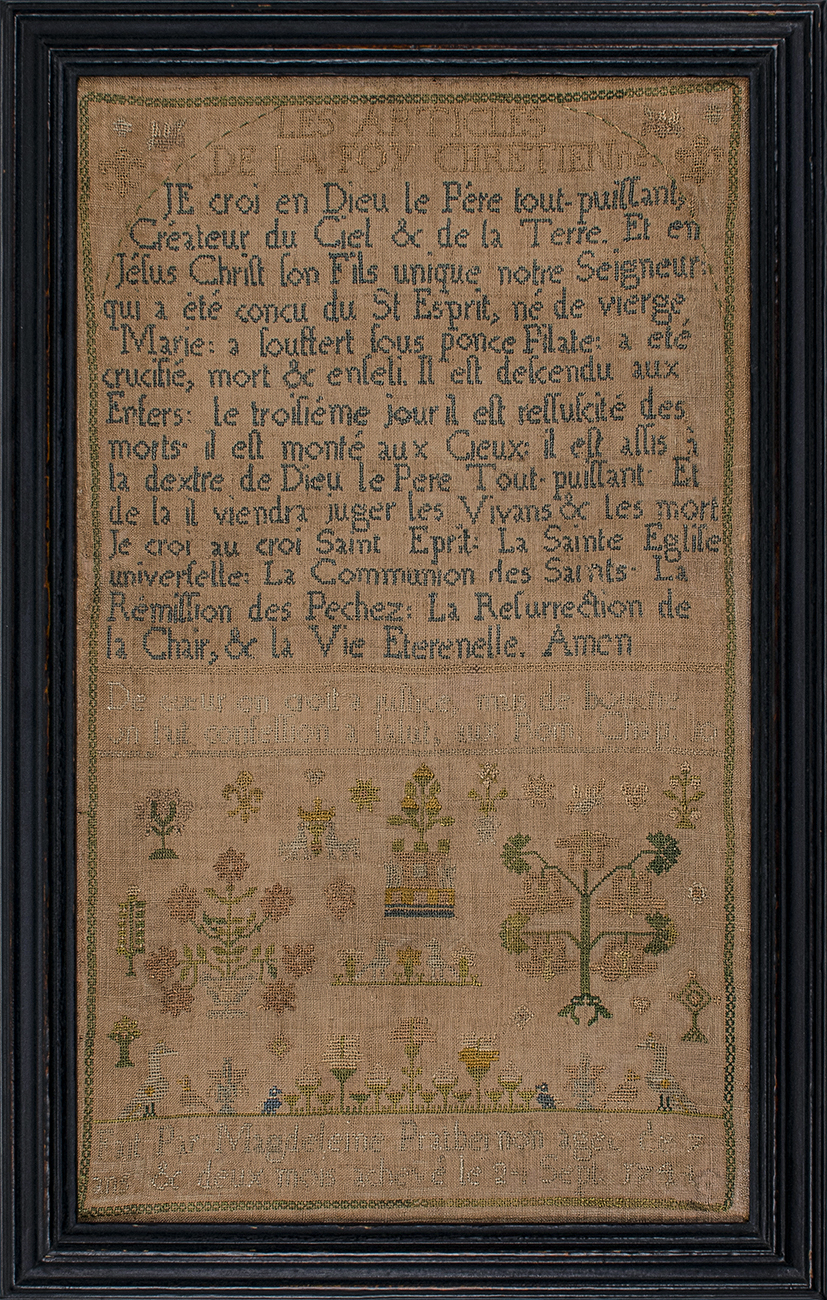 LES ARTICLES
DE LA FOY CHRETIENne
JE croi en Dieu le Pére tout-puiſſant,
Créateur du Ciel & de la Terre. Et en
Jéſus Chriſt ſon Fils unique notre Seigneur
qui a été concu du St Esprit, né de vierge
Marie: a ſouffert ſous ponce Pilate: a été
crucifié, mort & enſeli. Il eſt deſcendu aux
Enfers: le troiſiéme jour il eſt reſſuſcité des
morts. il eſt monté aux Cieux: il eſt aſſis à
la dextre de Dieu le Pere Tout-puiſſant. Et
de la il viendra juger les Vivans & les mort
Je croi au croi Saint Eprit: La Sainte Egliſe
univerſelle: La Communion des Saints. La
Rémiſſion des Pechez: La Reſurrection de
la Chair, & la Vie Eterenelle. Amen
De cœur on croit a juſtice, mais de
on fait confeſſion a ſalut. aux Rom. Chap. 10
Fait Par Magdeleine agée de
ans & deux mois le 24 Sept.